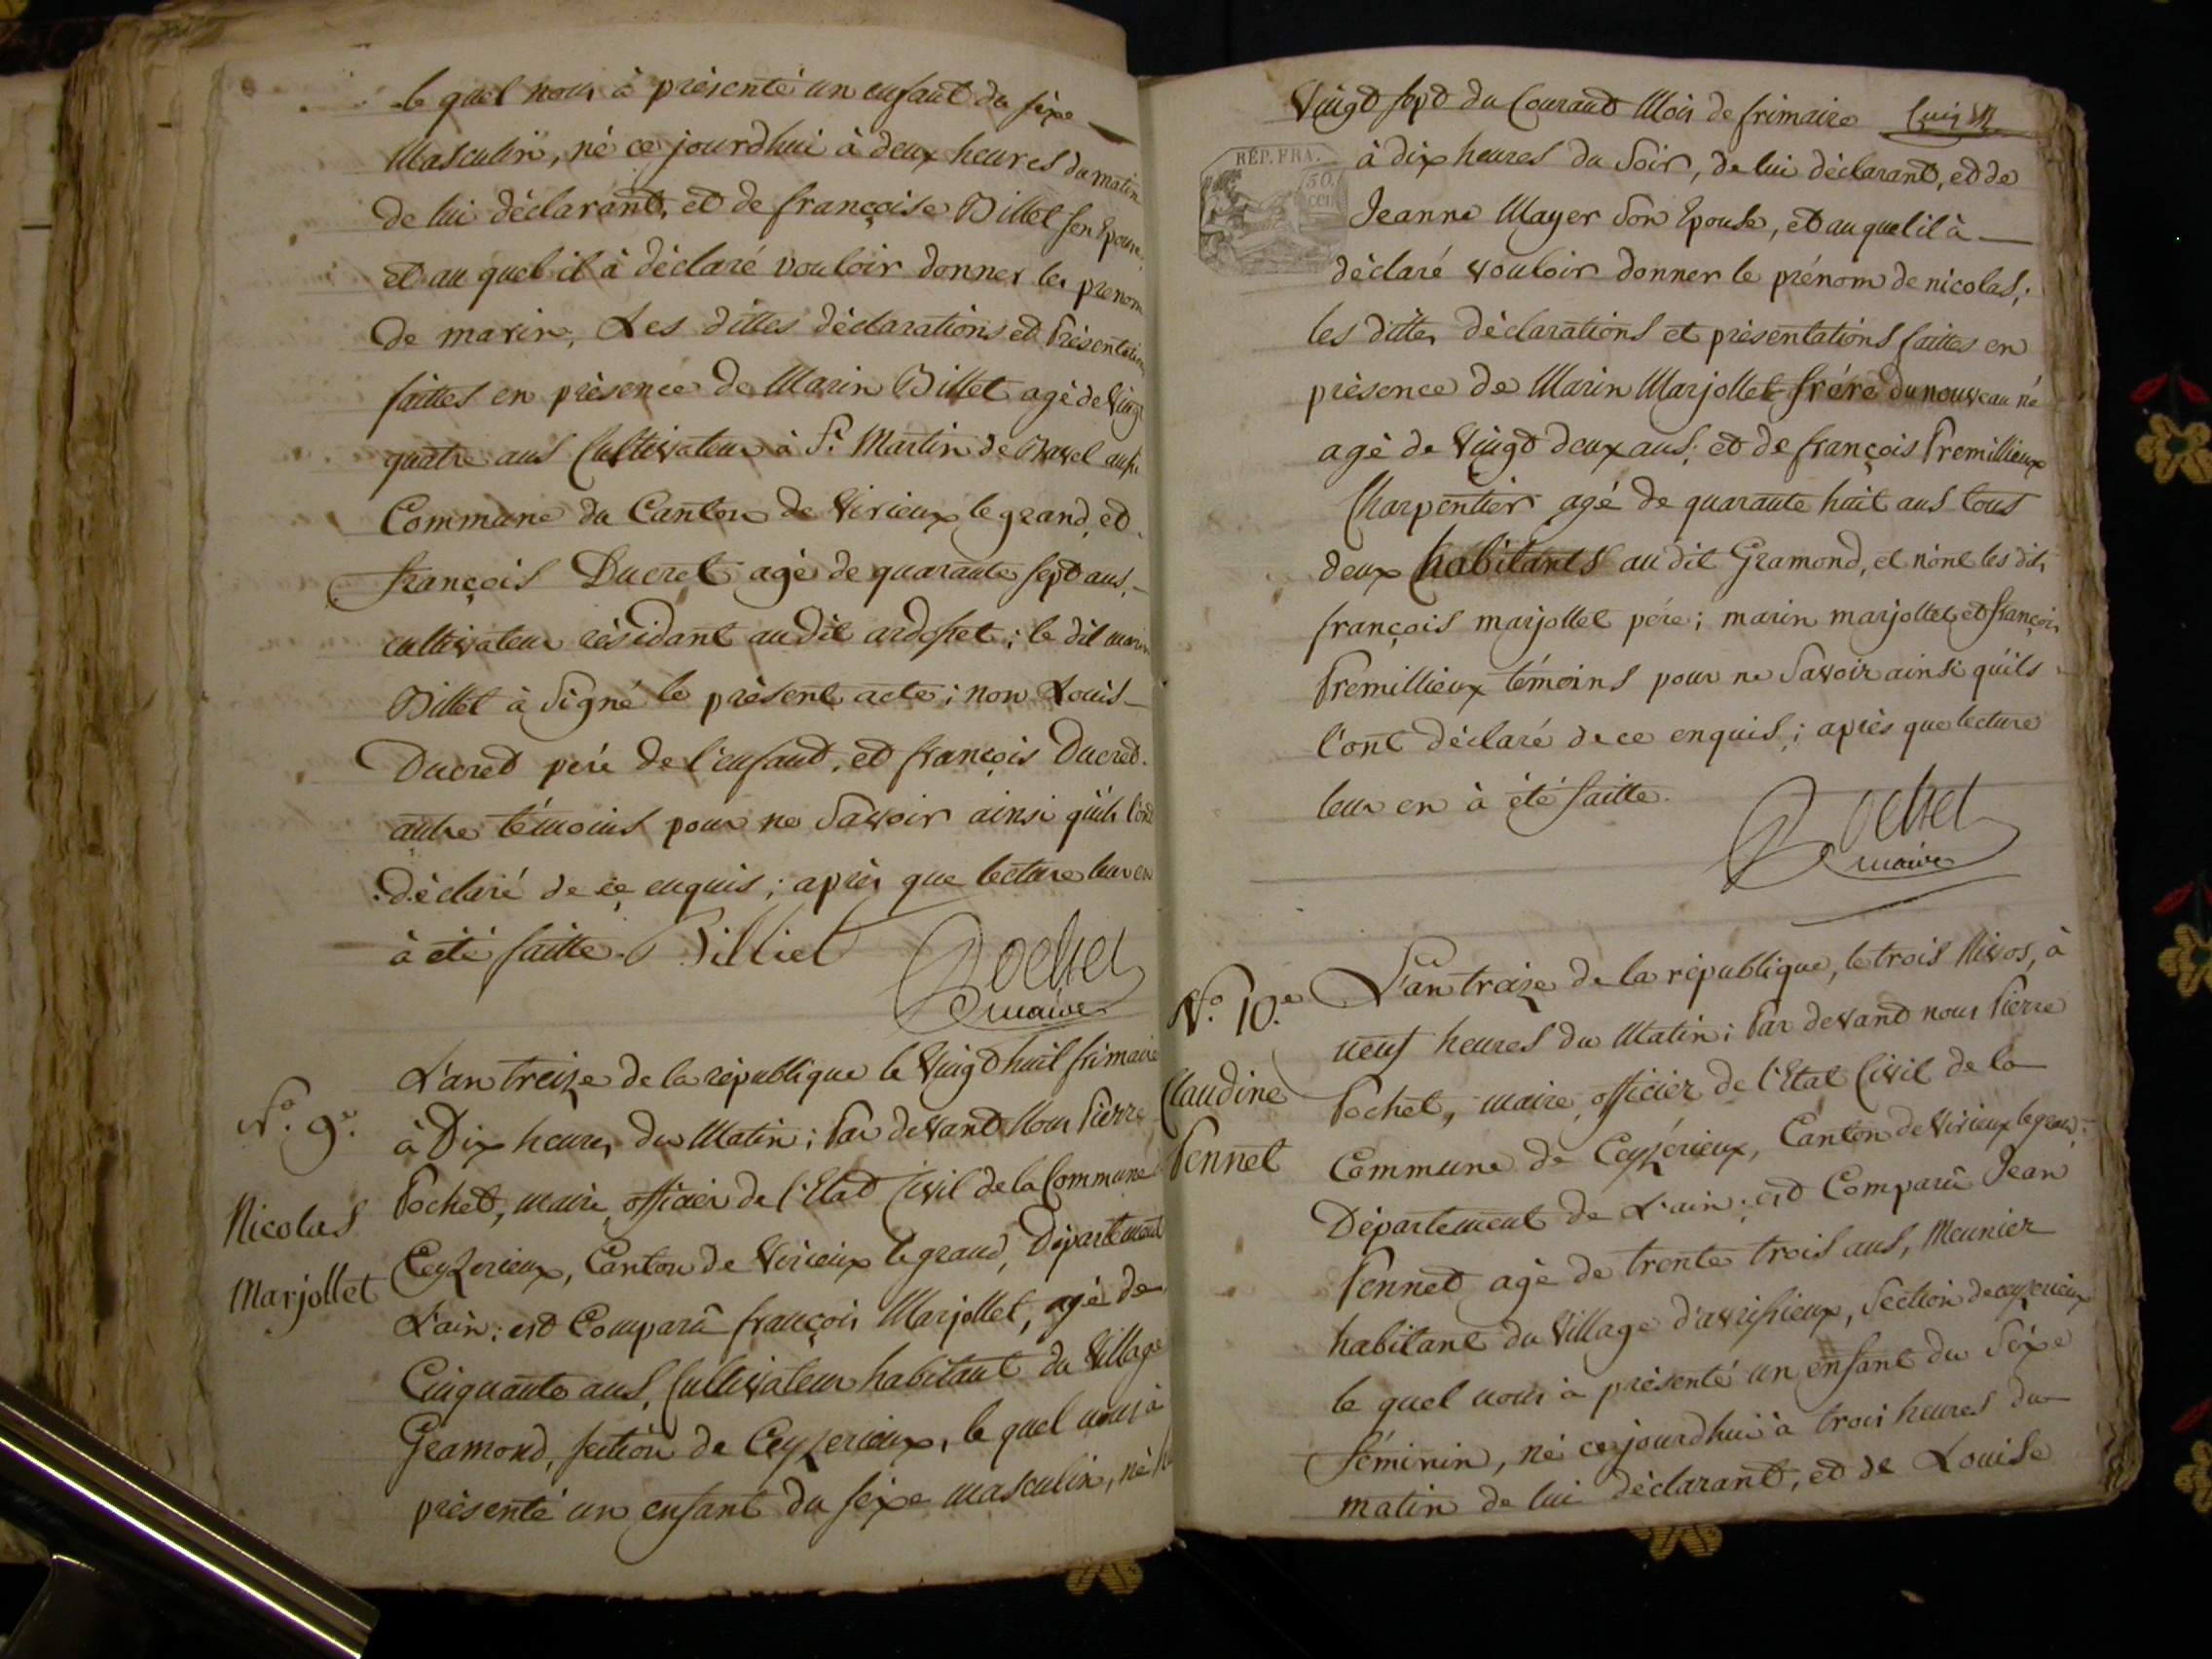 le quel nous à présenté un enfant du sèxe
Masculin, né ce jourdhui à deux heures du matin
de lui déclarant, et de françoise Billet son Epouse,
et au quel il à déclaré vouloir donner les prenom
de marin, Les dittes déclarations et Présentations
faittes en présence de Marin Billet agé de Vingt
quatre ans Cultivateur à St. Martin de Bavel aussi
Commune du Canton de Virieux le grand, et
françois Ducret agé de quarante sept ans,
cultivateur résidant au dit ardosset; le dit marin
Billet à Signé le présent acte; non Louis
Ducret péré de l'enfant, et françois Ducret
autre témoins pour ne Savoir ainsi qu'ils l'ont
déclaré de ce enquis; après que lecture leur en
à été faitte. Billiet Pochet
maire
N.° 9.e
Nicolas
Marjollet
L'an treize de la république le Vingt huit frimaire
à Dix heures du Matin; Par devant Nous Pierre
Pochet, maire, officier de l'Etat Civil de la Commune
Ceyzerieux, Canton de Virieux le grand, Département
L'ain; est Comparû françois Marjollet, agé de
Cinquante ans, Cultivateur habitant du Village
Gramond, section de Ceyzerieux, le quel nous à
présenté un enfant du sèxe masculin, né le
Vingt sept du Courant Mois de frimaire
RÉP. FRA.
50.
à dix heures du Soir, de lui déclarant, et de
Jeanne Mayer Son Epouse, et au quel il à
déclaré vouloir donner le prénom de nicolas,
les dittes déclarations et présentations faittes en
présence de Marin Marjollet frére du nouveau né
agé de Vingt deux ans; et de françois Premillieux
Charpentier agé de quarante huit ans tous
deux habitants au dit Gramond, et n'ont les dits
françois marjollet pére; marin marjollet et françois
Premillieux témoins pour ne Savoir ainsi qu'ils
l'ont déclaré de ce enquis; après que lecture
leur en à été faitte. Pochet
maire
N.° 10.e
Claudine
Pennet
L'an treize de la république, le trois Nivos, à
neuf heures du Matin; Par devant nous Pierre
Pochet, maire, officier de l'Etat Civil de la
Commune de Ceyzérieux, Canton de Virieux le grand;
Département de L'ain; est Comparû Jean
Pennet agé de trente trois ans, Meunier
habitant du Village d'avrissieux, Section de ceyzerieux
le quel nous à présenté un enfant du Sèxe
féminin, né ce jourdhui à trois heures du
matin de lui déclarant, et de Louise